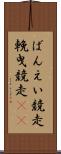 ばんえい競走
輓曳競走《《